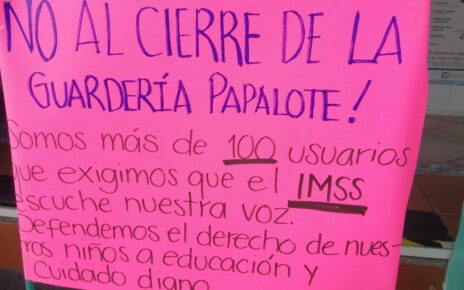 NO AL CIERRE DE LA
GUARDERÍA PAPALOTE!
Somos más de 100 usuarios
que exigimos que el IMSS
escuche nuestra voz.
Defendemos el derecho de nues-
tros niños a educación y
Cuidado digno